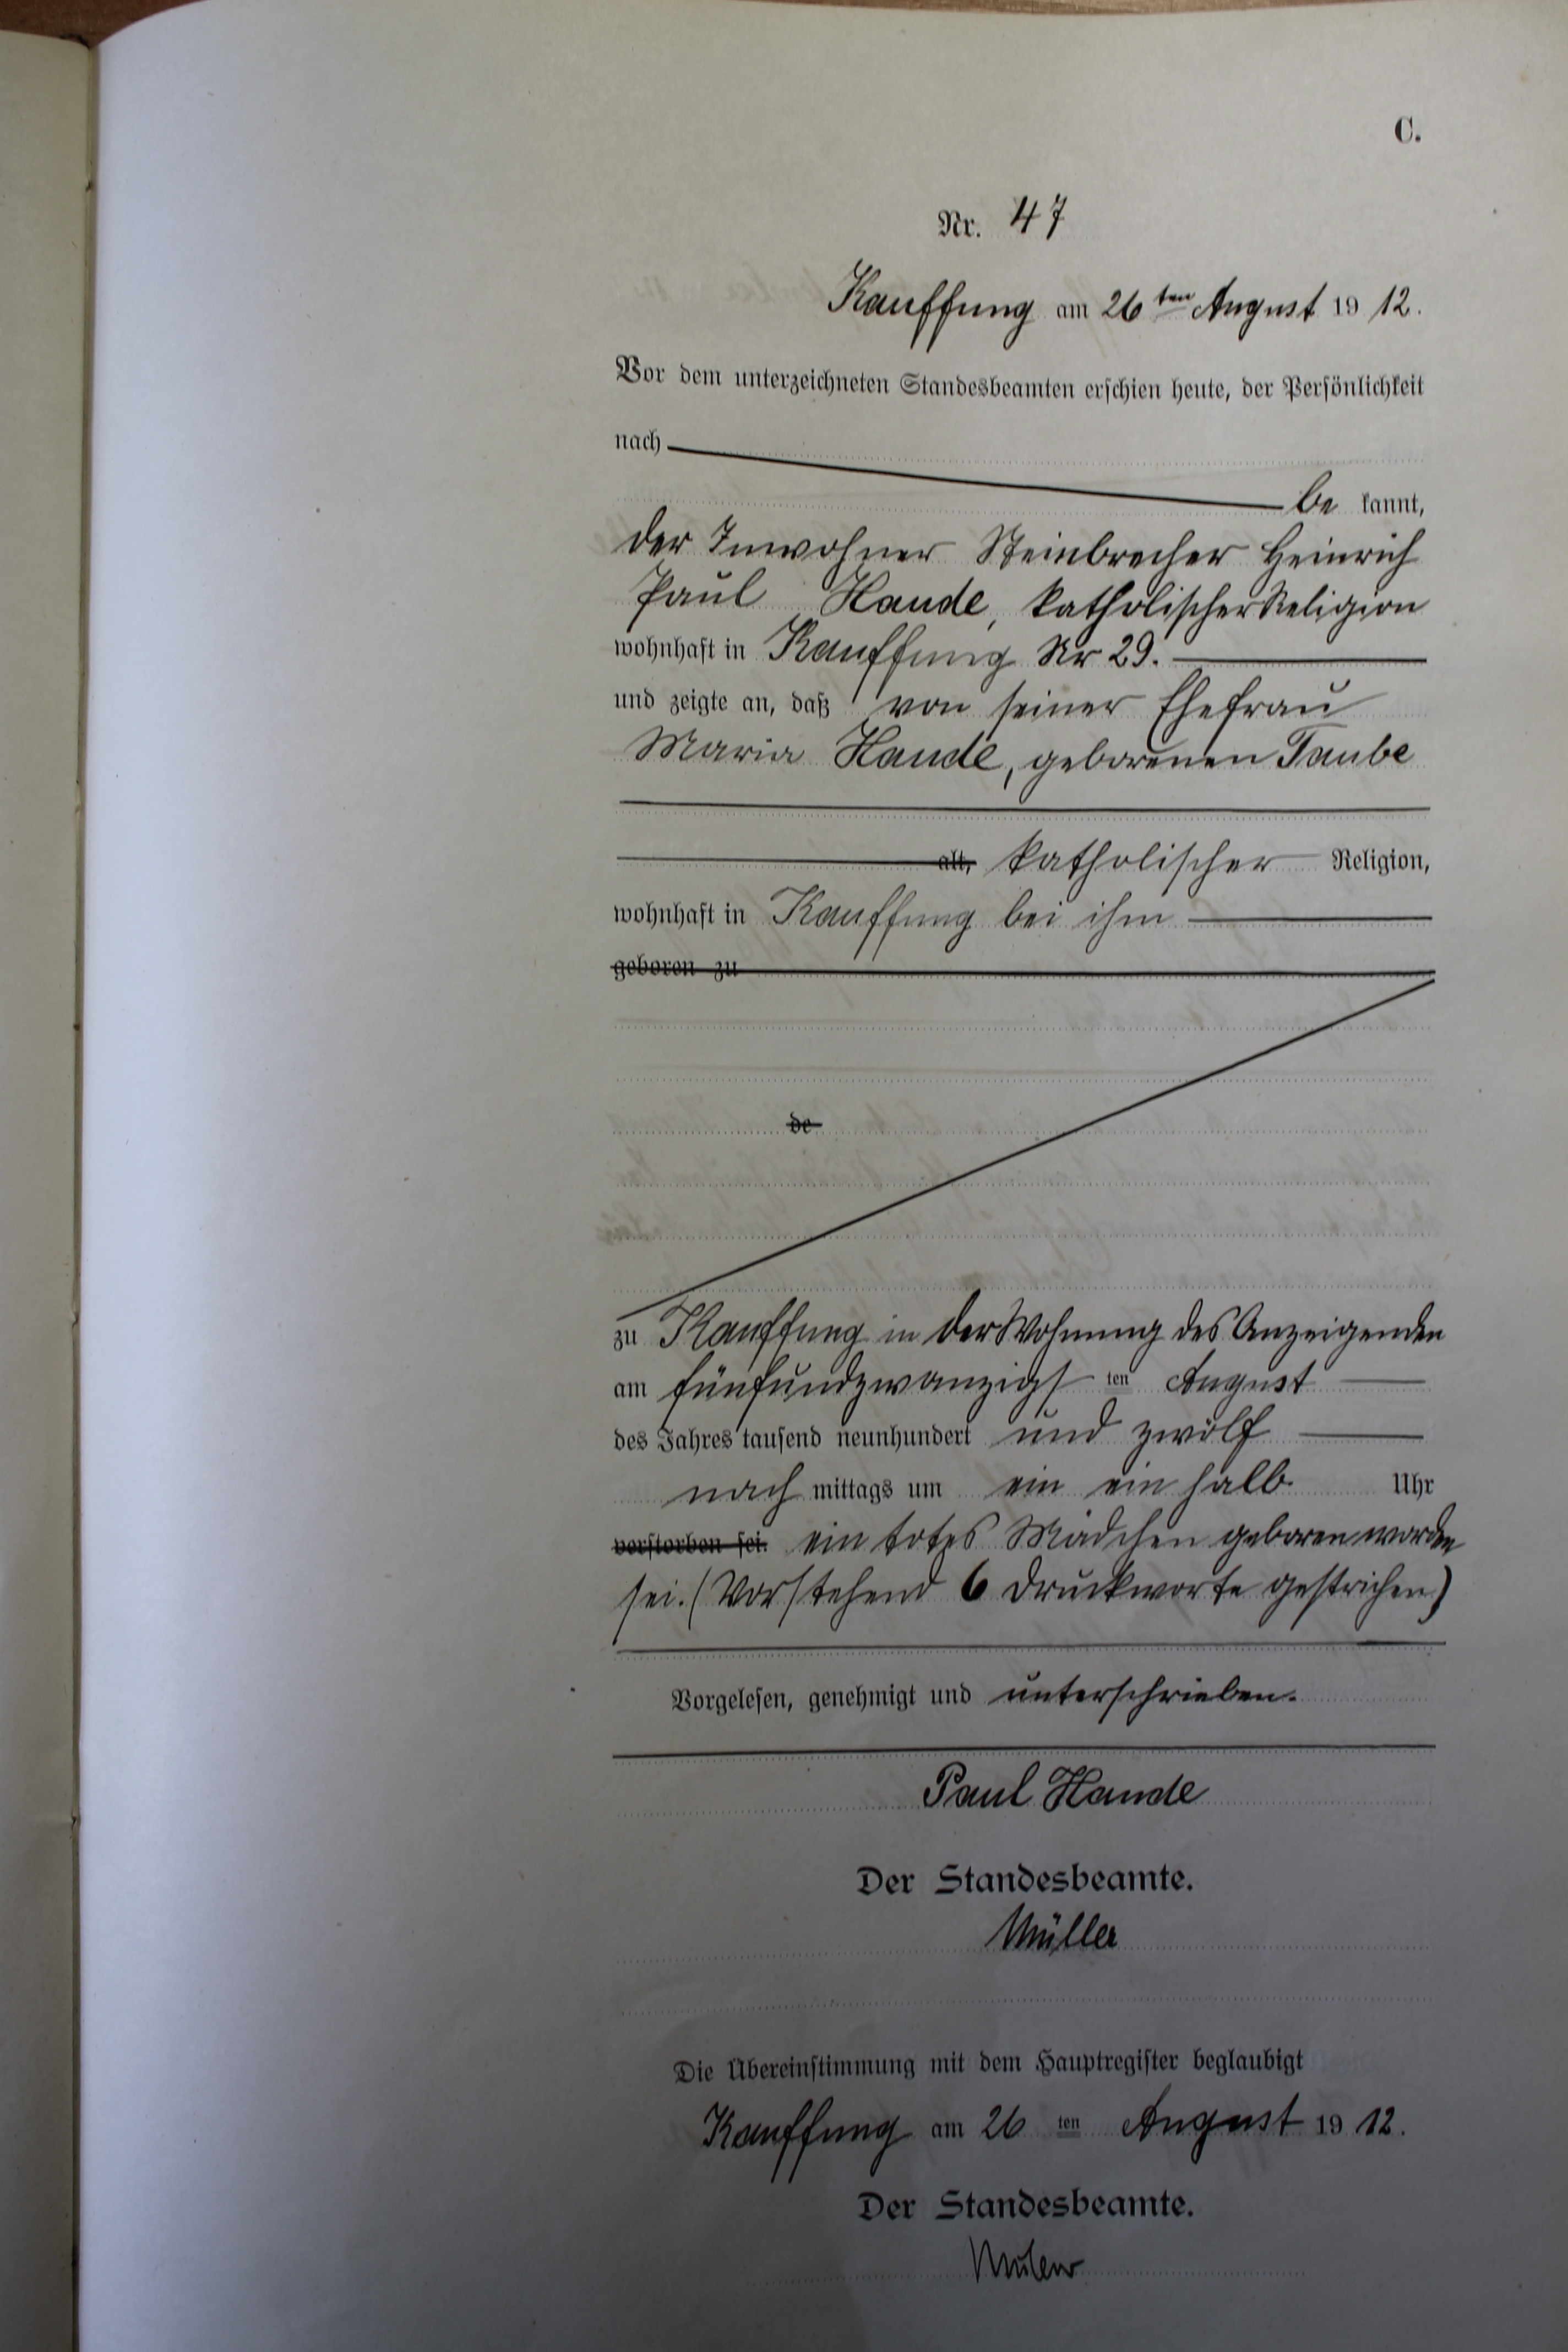 C.
Nr. 47
Kauffung am 26ten August 1912.
Vor dem unterzeichneten Standesbeamten erschien heute, der Persönlichkeit
nach
be kannt,
der Inwohner Steinbrecher Heinrich
Paul Hande, katholischer Religion
wohnhaft in Kauffung Nr 29.
und zeigte an, daß von seiner Ehefrau
Maria Hande, geborenen Taube
alt, katholischer Religion,
wohnhaft in Kauffung bei ihm
geboren zu
de
zu Kauffung in der Wohnung des Anzeigenden
am fünfundzwanzigsten August
des Jahres tausend neunhundert und zwölf
nach mittags um ein ein halb Uhr
verstorben sei. ein totes Mädchen geboren worden
sei. (Vorstehend 6 Druckworte gestrichen)
Vorgelesen, genehmigt und unterschrieben.
Paul Hande
Der Standesbeamte.
Müller
Die Übereinstimmung mit dem Hauptregister beglaubigt
Kauffung am 26ten August 1912.
Der Standesbeamte.
Müller